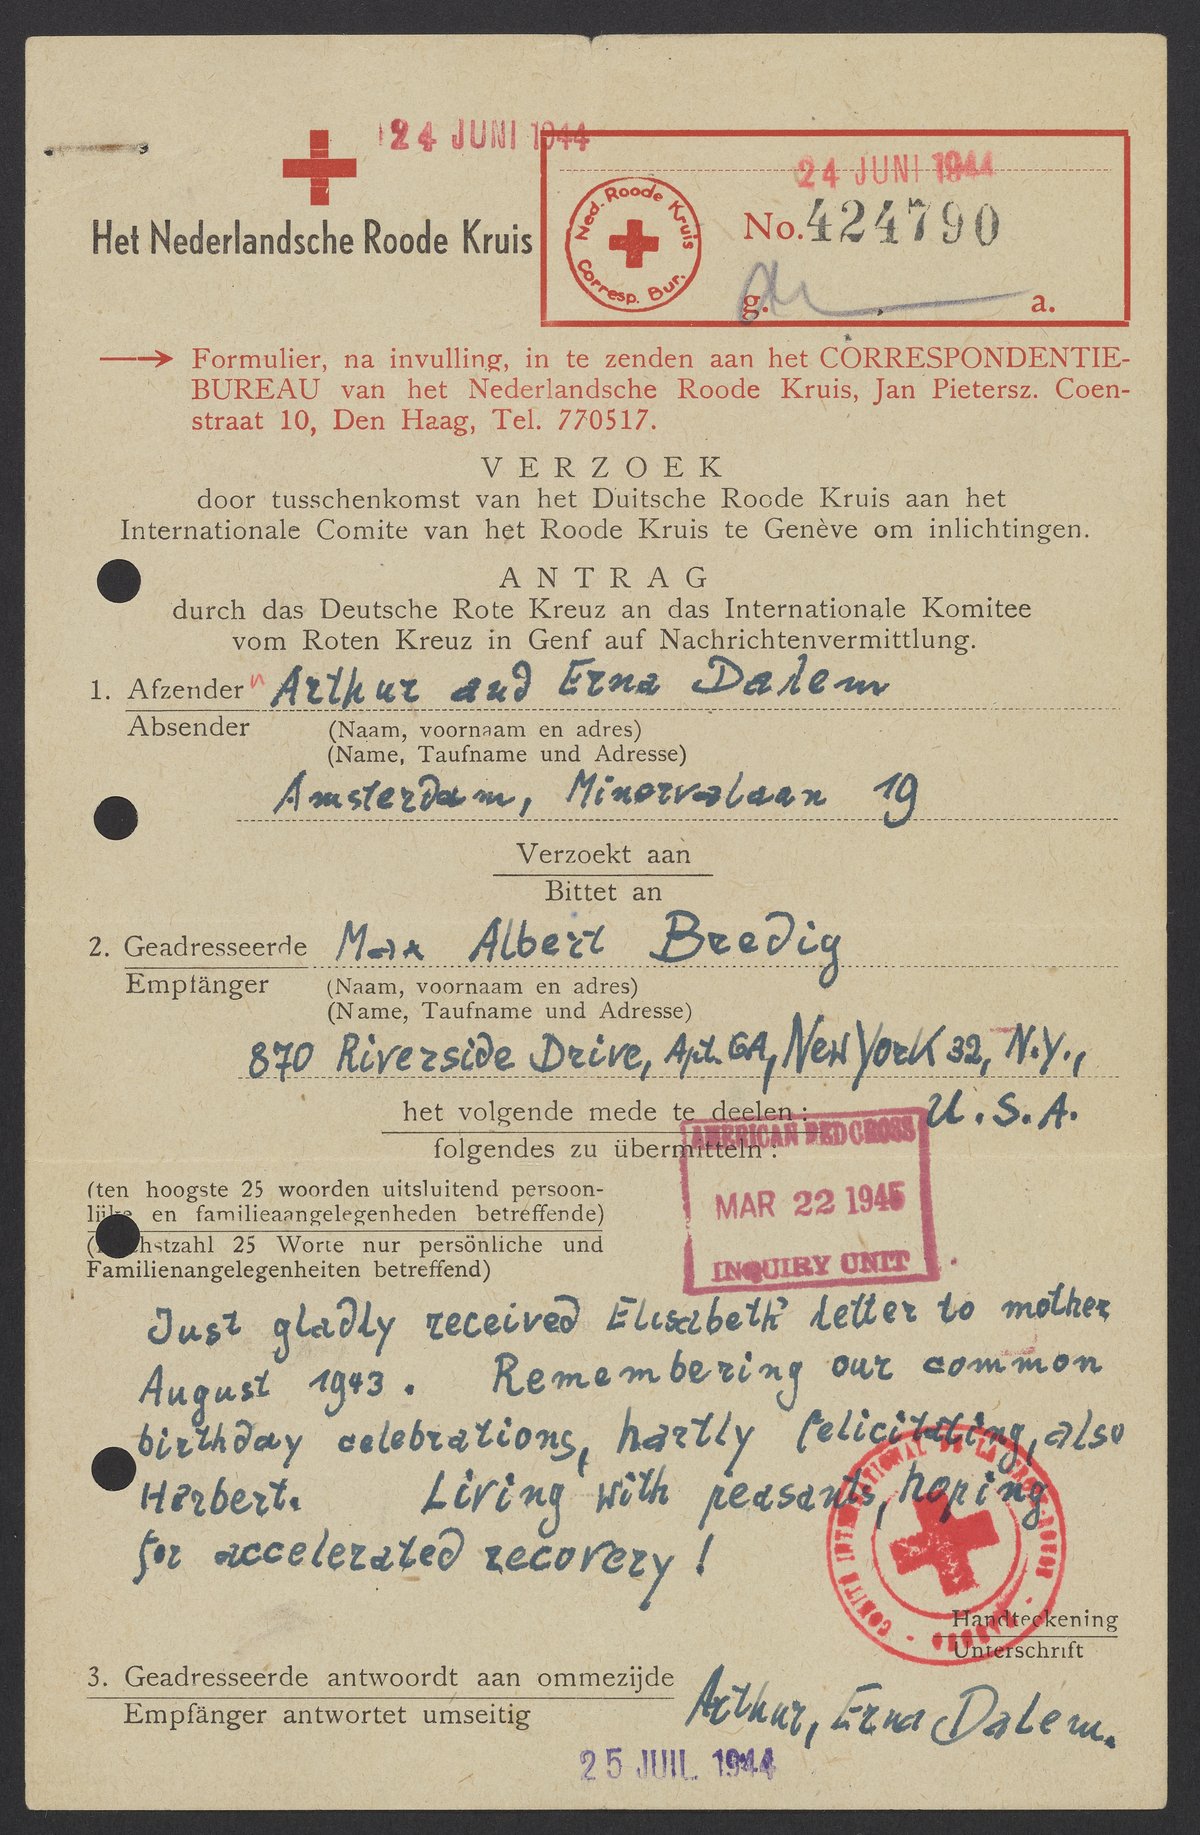 24 JUNI 1944
24 JUNI 1944
Het Nederlandsche Roode Kruis
Ned. Roode Kruis
Corresp. Bur.
No. 424790
g. a.
Formulier, na invulling, in te zenden aan het CORRESPONDENTIE-
BUREAU van het Nederlandsche Roode Kruis, Jan Pietersz. Coen-
straat 10, Den Haag, Tel. 770517.
VERZOEK
door tusschenkomst van het Duitsche Roode Kruis aan het
Internationale Comite van het Roode Kruis te Genève om inlichtingen.
ANTRAG
durch das Deutsche Rote Kreuz an das Internationale Komitee
vom Roten Kreuz in Genf auf Nachrichtenvermittlung.
1. Afzender Arthur and Erna Dalem
Absender (Naam, voornaam en adres)
(Name, Taufname und Adresse)
Amsterdam, Minervalaan 19
Verzoekt aan
Bittet an
2. Geadresseerde Max Albert Bredig
Empfänger (Naam, voornaam en adres)
(Name, Taufname und Adresse)
870 Riverside Drive, Apt. 6A, New York 32, N.Y.,
het volgende mede te deelen: U.S.A.
folgendes zu übermitteln:
AMERICAN RED CROSS
MAR 22 1945
INQUIRY UNIT
(ten hoogste 25 woorden uitsluitend persoon-
lijke en familieaangelegenheden betreffende)
(Höchstzahl 25 Worte nur persönliche und
Familienangelegenheiten betreffend)
Just gladly received Elisabeth' letter to mother
August 1943. Remembering our common
birthday celebrations, hartly felicitating, also
Herbert. Living with peasants, hoping
for accelerated recovery!
COMITÉ INTERNATIONAL DE LA CROIX-ROUGE
Handteekening
Unterschrift
3. Geadresseerde antwoordt aan ommezijde
Empfänger antwortet umseitig
Arthur, Erna Dalem.
25 JUIL. 1944